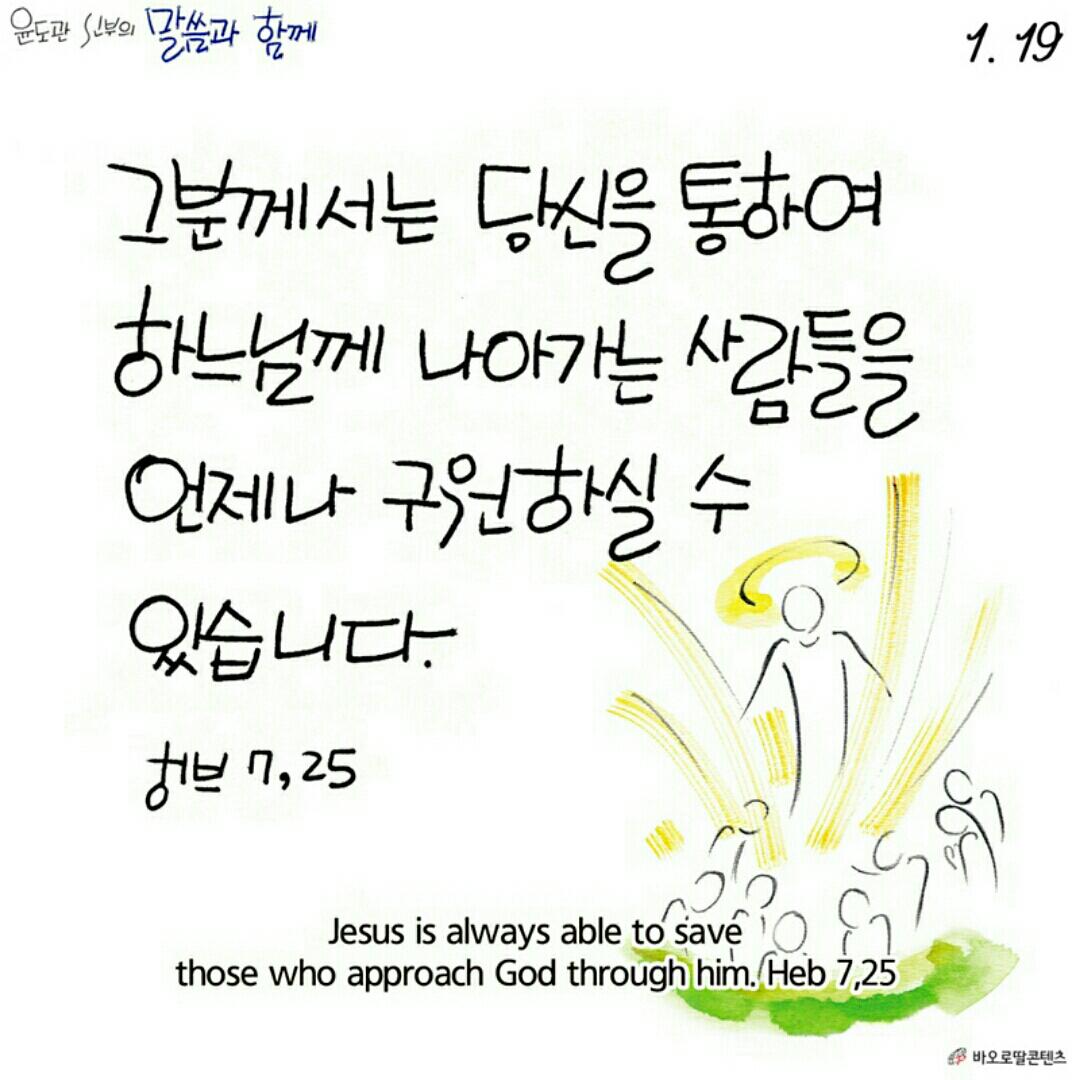 윤도관 신부의 말씀과 함께
1. 19
그분께서는 당신을 통하여
하느님께 나아가는 사람들을
언제나 구원하실 수
있습니다.
히브 7,25
Jesus is always able to save
those who approach God through him. Heb 7,25
바오로딸콘텐츠